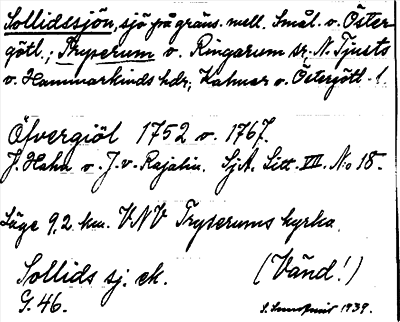 Sollidssjön, sjö på gräns. mell. Smål. o. Öster-
götl.; Tryserum o. Ringarum sr, N. Tjusts
o. Hammarkinds hdr, Kalmar o. Östergötl. l.
Öfvergiöl 1752 o. 1767.
J. Hahn o. J. v. Rajalin. SjA. Litt. VII. No 18.
Läge 9,2 km. VNV Tryserums kyrka.
Sollids sj. ek.
(Vänd!)
G. 46.
1939.